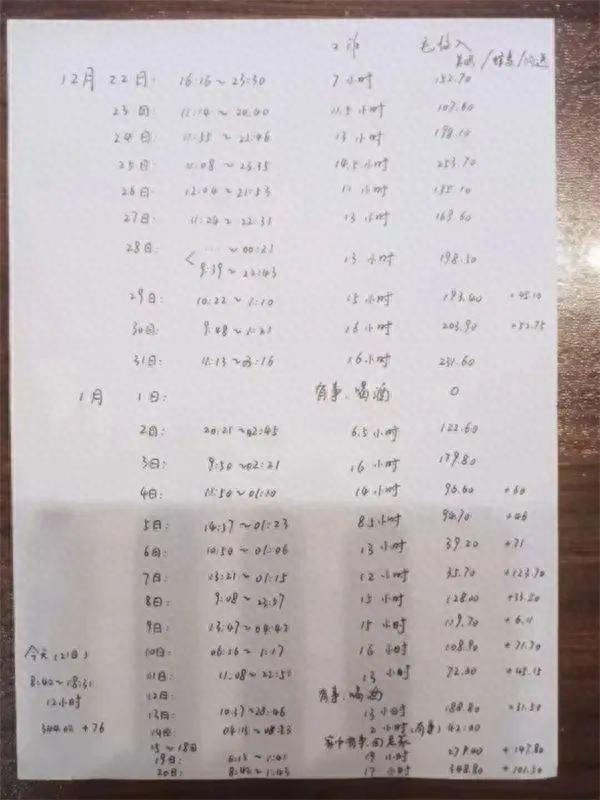 工作 毛收入
美团/蜂鸟/闪送
12月 22日: 16:16~23:30 7小时 152.70
23日: 11:14~20:40 11.5小时 107.60
24日: 11:55~22:46 13小时 198.10
25日: 11:08~23:35 14.5小时 253.70
26日: 12:04~21:53 11小时 135.10
27日: 11:24~22:31 13小时 163.60
28日: ~00:21
9:39~22:43 13小时 198.30
29日: 10:22~1:10 15小时 193.40 +45.10
30日: 9:48~1:21 16小时 203.90 +52.75
31日: 11:13~03:16 16小时 231.60
1月 1日: 有事、喝酒 0
2日: 20:21~02:45 6.5小时 122.60
3日: 9:50~02:21 16小时 179.80
4日: 11:50~01:10 14小时 96.60 +60
5日: 14:37~01:23 8.5小时 94.70 +46
6日: 10:50~01:06 13小时 39.20 +71
7日: 13:21~01:15 12小时 35.70 +123.70
8日: 9:08~23:57 15小时 128.00 +33.80
9日: 13:47~04:43 15小时 119.70 +6.11
10日: 06:16~1:17 16小时 108.90 +71.70
11日: 11:08~22:50 13小时 72.60 +45.15
12日: 有事、喝酒
13日: 10:37~23:46 13小时 188.80 +31.50
14日: 04:15~08:53 2小时(有事) 42.00
15~18日 有事 回老家
19日: 6:13~1:41 19小时 279.00 +147.80
20日: 8:42~1:43 17小时 348.80 +101.50
今天(21日)
8:40~18:31
12小时
344.00 +76